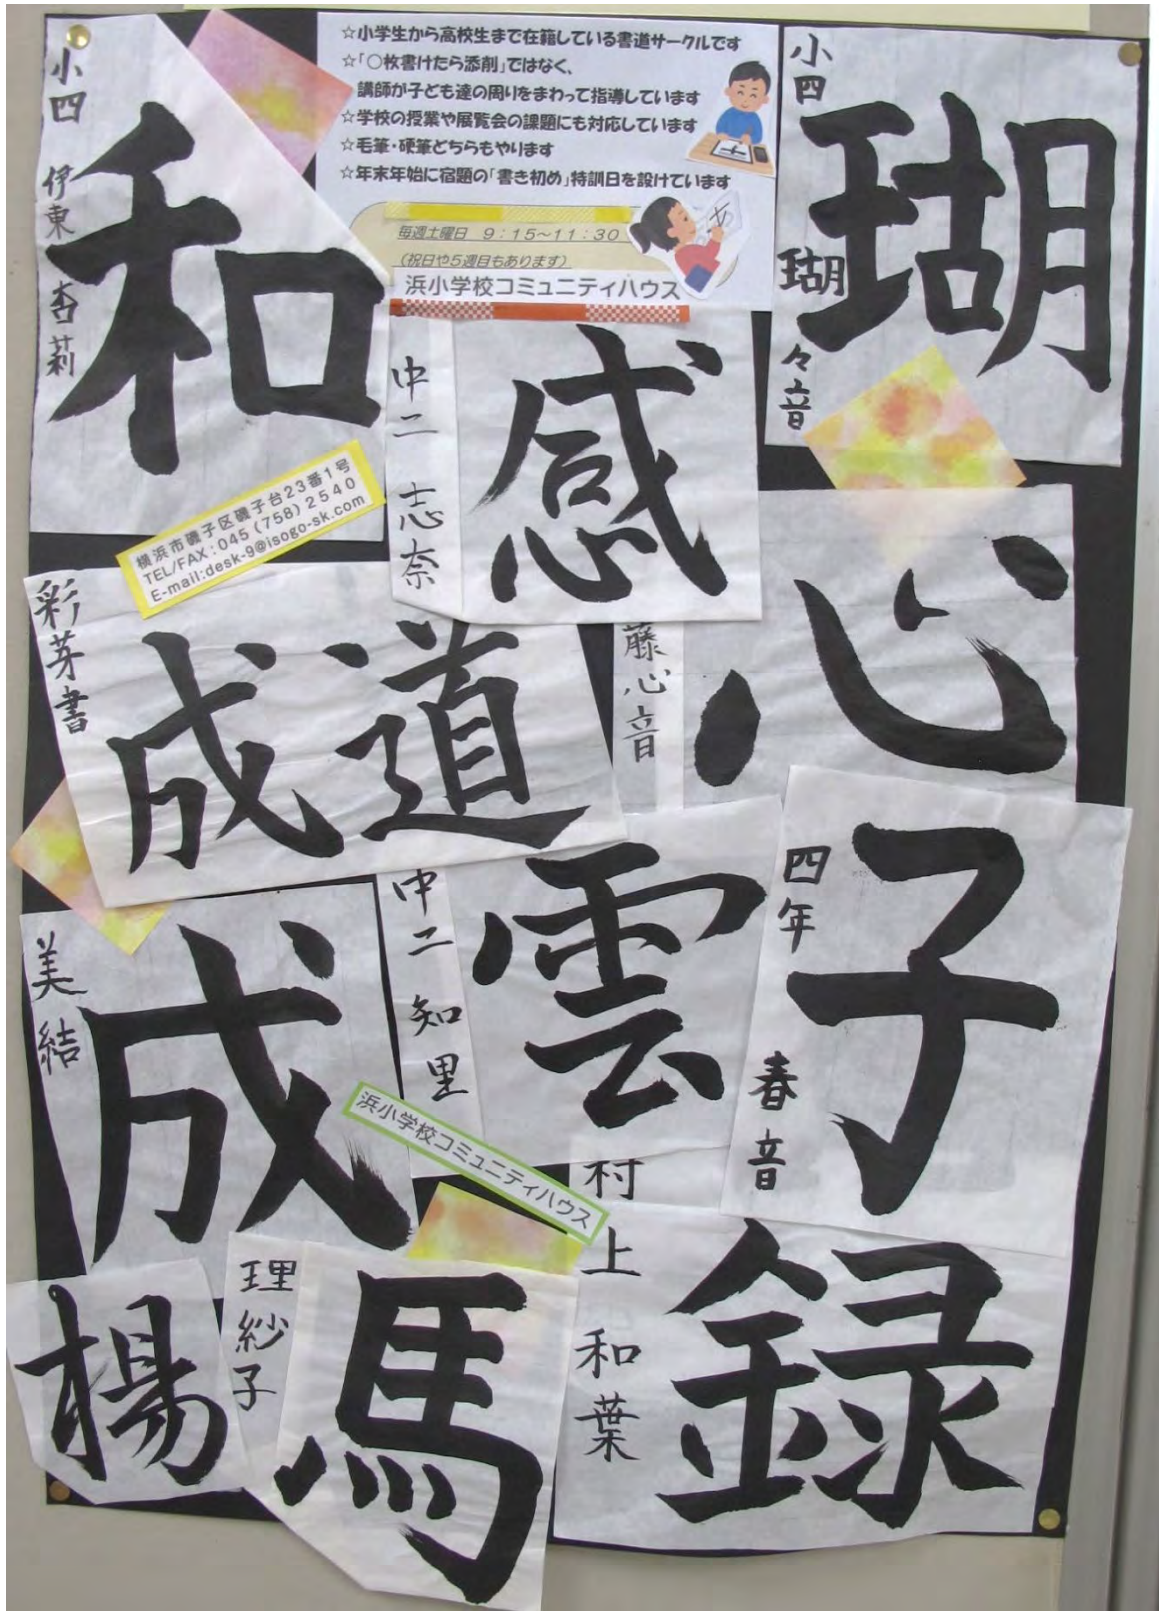 ☆小学生から高校生まで在籍している書道サークルです
☆「○枚書けたら添削」ではなく、
講師が子ども達の周りをまわって指導しています
☆学校の授業や展覧会の課題にも対応しています
☆毛筆・硬筆どちらもやります
☆年末年始に宿題の「書き初め」特訓日を設けています
毎週土曜日 9:15~11:30
(祝日や5週目もあります)
浜小学校コミュニティハウス
和
小四 伊東 杏莉
瑚
小四 瑚々音
感
中二 志奈
横浜市磯子区磯子台23番1号
TEL/FAX:045(758)2540
E-mail:desk-9@isogo-sk.com
心
藤心音
道
成
彩芽書
雲
中二 知里
子
四年 春音
成
美結
浜小学校コミュニティハウス
録
村上 和葉
馬
理紗子
楊